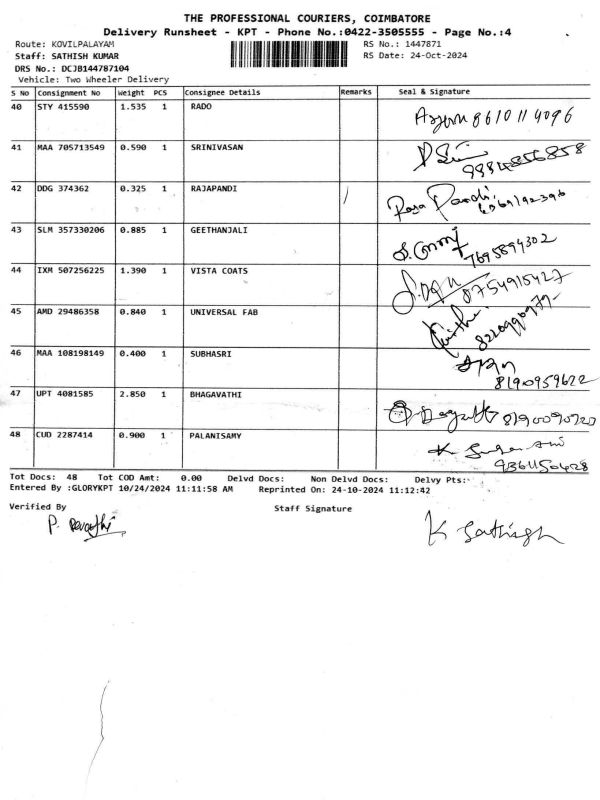 THE PROFESSIONAL COURIERS, COIMBATORE
Delivery Runsheet - KPT - Phone No.:0422-3505555 - Page No.:4
Route: KOVILPALAYAM RS No.: 1447871
Staff: SATHISH KUMAR RS Date: 24-Oct-2024
DRS No.: DCJB144787104
Vehicle: Two Wheeler Delivery
S No Consignment No Weight PCS Consignee Details Remarks Seal & Signature
40 STY 415590 1.535 1 RADO 8610114096
41 MAA 705713549 0.590 1 SRINIVASAN 9884856858
42 DDG 374362 0.325 1 RAJAPANDI Raja Pandi
43 SLM 357330206 0.885 1 GEETHANJALI 7695894302
44 IXM 507256225 1.390 1 VISTA COATS 8754915427
45 AMD 29486358 0.840 1 UNIVERSAL FAB 8220990979
46 MAA 108198149 0.400 1 SUBHASRI 8190959622
47 UPT 4081585 2.850 1 BHAGAVATHI 8190090720
48 CUD 2287414 0.900 1 PALANISAMY 9361150428
Tot Docs: 48 Tot COD Amt: 0.00 Delvd Docs: Non Delvd Docs: Delvy Pts:
Entered By :GLORYKPT 10/24/2024 11:11:58 AM Reprinted On: 24-10-2024 11:12:42
Verified By Staff Signature
P. Revathi K Sathish